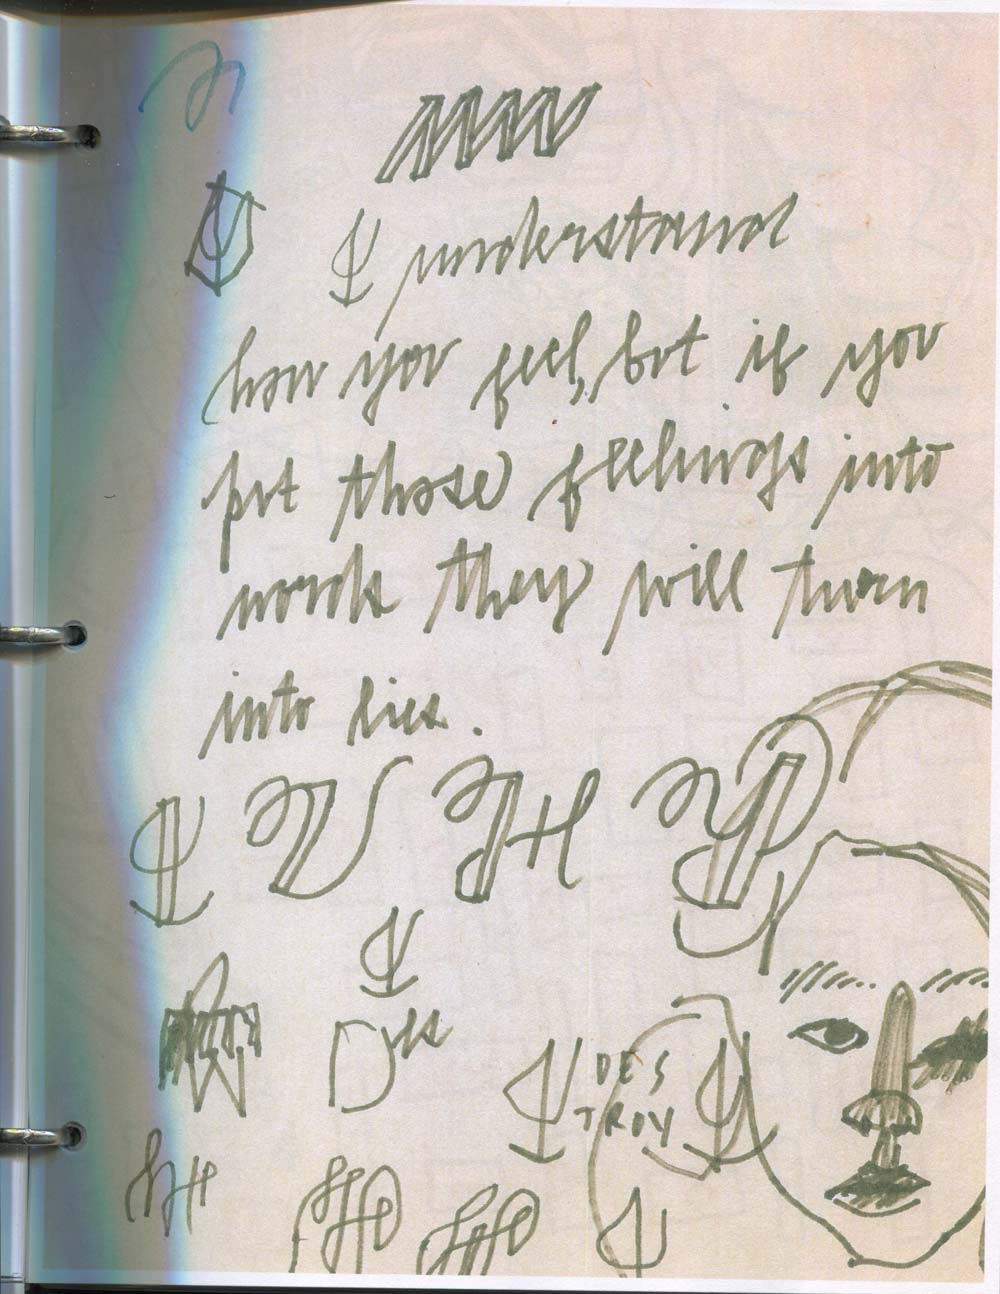 I understand
how you feel, but if you
put those feelings into
words they will turn
into lies.
DES
TROY